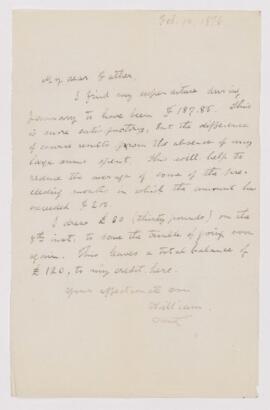 Feb. 10, 1896
My dear Father,
I find my expenditure during
January to have been £ 187.85. This
is more satisfactory, but the difference
of course results from the absence of any
large sums spent. This will help to
reduce the average of some of the pre-
ceeding months in which the amount has
exceeded £ 200.
I drew £ 30 (thirty pounds) on the
8th inst. to save the trouble of going over
again. This leaves a total balance of
£ 120, to my credit here.
Your affectionate son
William